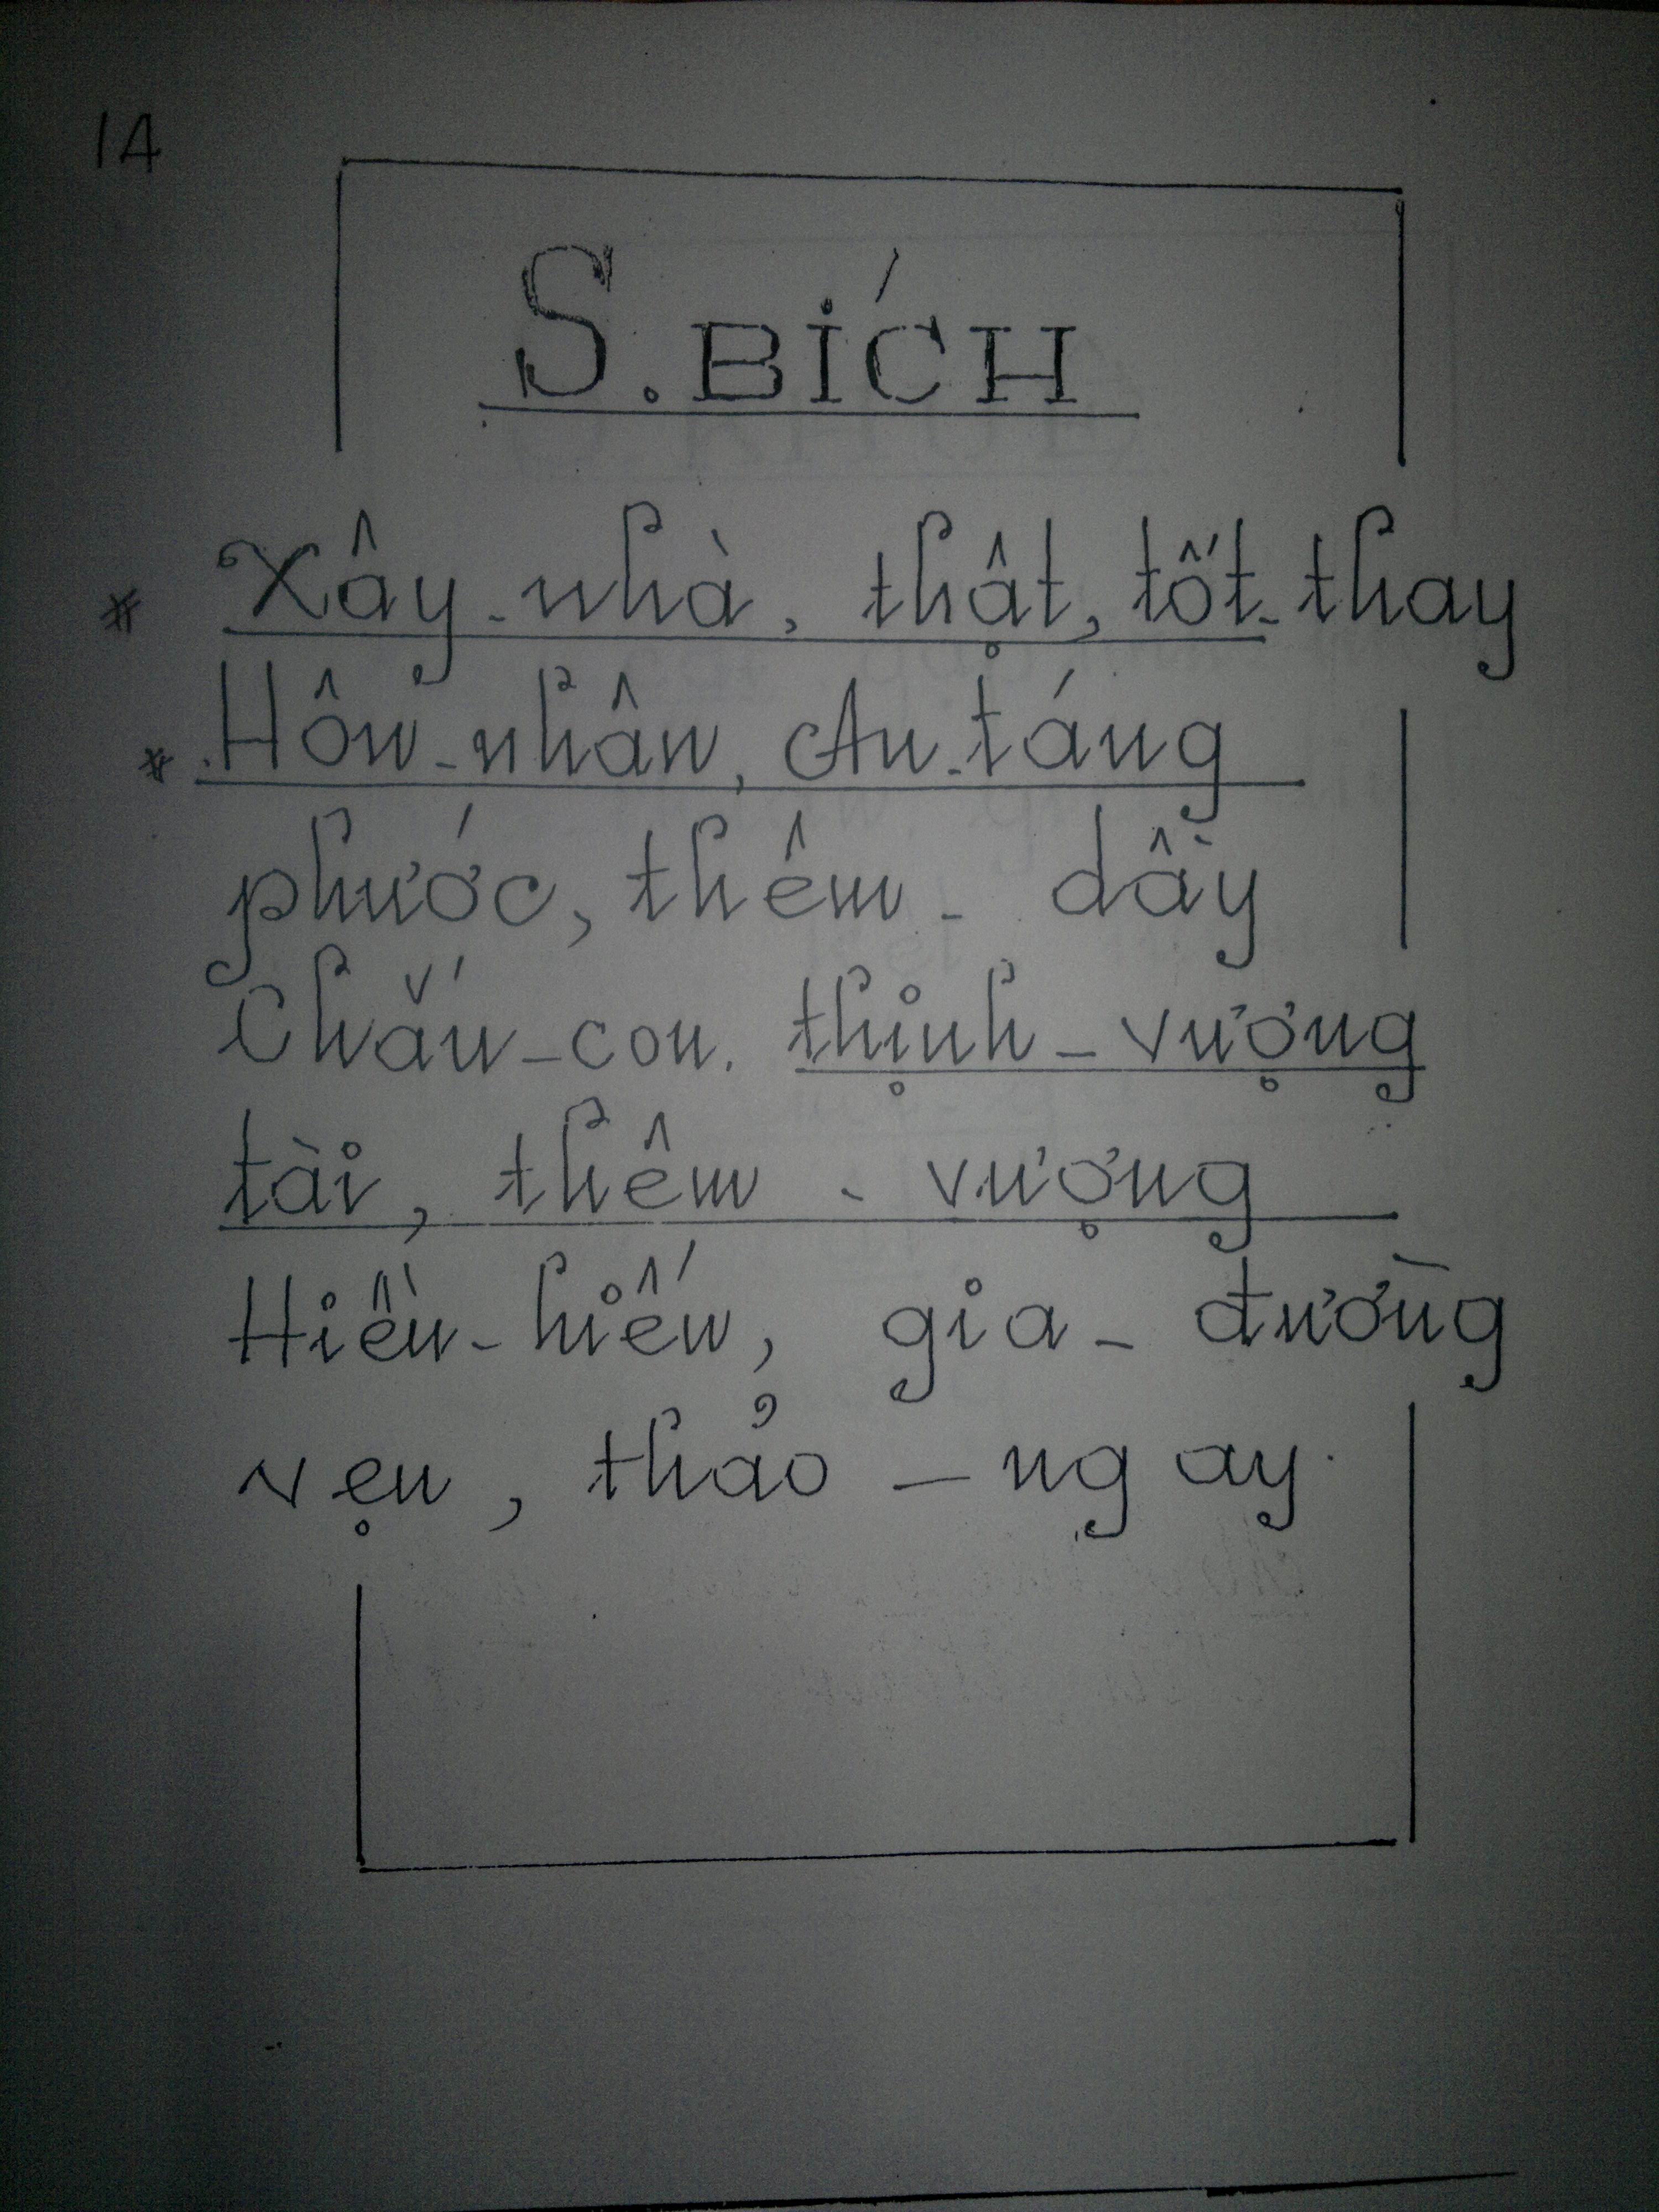 14
S. BÍCH
* Xây-nhà, thật, tốt-thay
* Hôn-nhân, An-táng
phước, thêm- dầy
Chắn-con. thịnh-vượng
tài, thêm - vượng
Hiền-hiến, gia- đường
vẹn, thảo - ngay.